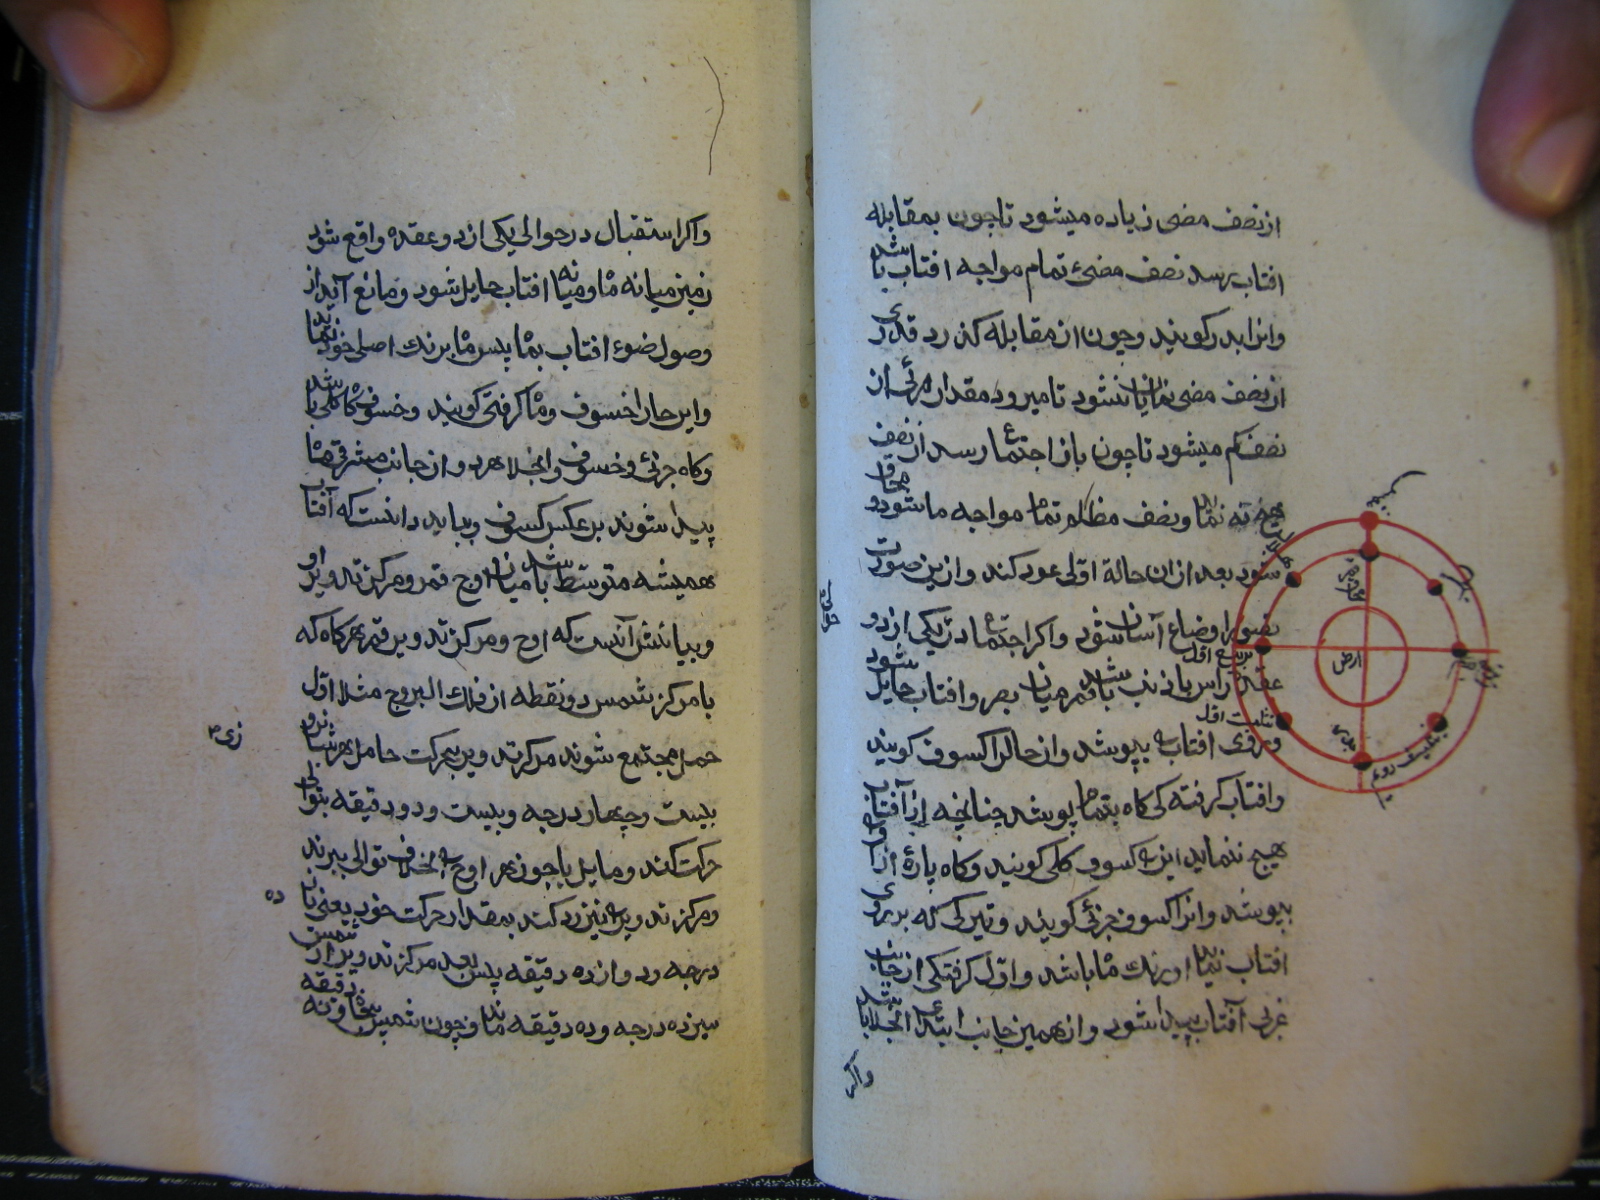 از نصف مضی زیاده میشود تا چون بمقابله
افتاب رسد نصف مضئ تمام مواجه افتاب باشد
و انرا بدر کویند و چون از مقابله کذرد قدری
از نصف مضی نشود تا میرود مقدار مرئی از
نصف کم میشود تا چون باز اجتماع رسد از نصف
هیچ نه نماید و نصف مظلم تمام مواجه ما شود و محاق
شود بعد از ان حالة اولی عود کند و ازین صورت
تصور اوضاع آسان شود و اکر اجتماع در یکی از دو
عقده راس یا ذنب باشد قمر میان بصر و افتاب حایل شود
و روی افتاب بپوشد و ان حال را کسوف کویند
و افتاب کرفته کی کاه بتمام پوشد چنانچه از آفتاب
هیچ ننماید این کسوف کلی کویند و کاه پارۀ از
بپوشد و انرا کسوف جزئی کویند و تیرکی که بر روی
افتاب نماید رنك ماه باشد و اول کرفتکی از جانب
غربی آفتاب پیدا شود و از همین جانب ابتدای انجلا باشد
واکر
تربیع اول
تثلیث اول
ارض
واکر استقبال در حوالی یکی از دو عقده واقع شود
زمین میانه ماه و میانه افتاب حایل شود و مانع آید از
وصول ضوء افتاب بماه پس ماه برنك اصلی خود نماید
و این حال را خسوف و ماه کرفتکی کویند و خسوف کاه کلی باشد
و کاه جزئی و خسوف و انجلا هر دو از جانب مشرقی ماه
پیدا شوند بر عکس کسوف و بباید دانست که آفتاب
همیشه متوسط باشد میان اوج قمر و مرکز تدویر او
و بیانش آنست که اوج و مرکز تدویر قمر هر کاه که
با مرکز شمس دو نقطه از فلك البروج مثلا اول
حمل مجتمع شوند مرکز تدویر بحرکت حامل هر شبانروز
بیست و چهار درجه و بیست و دو دقیقه بتوالی
حرکت کند و مایل یا جوزهر اوج بخلاف توالی ببرند
و مرکز تدویر نیز رد کند بمقدار حرکت خود یعنی یازده
درجه و دوازده دقیقه پس بعد مرکز تدویر از شمس
سیزده درجه و ده دقیقه ماند و چون شمس پنجاه و نه دقیقه